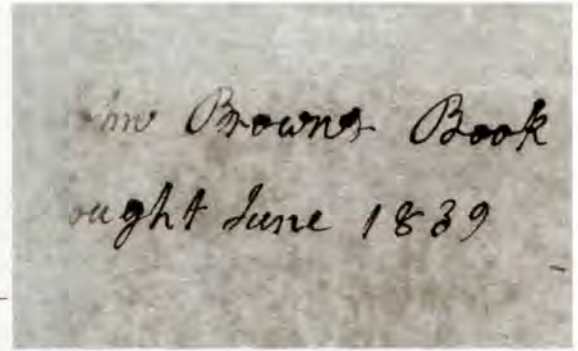 ohn Browns Book
ought June 1839